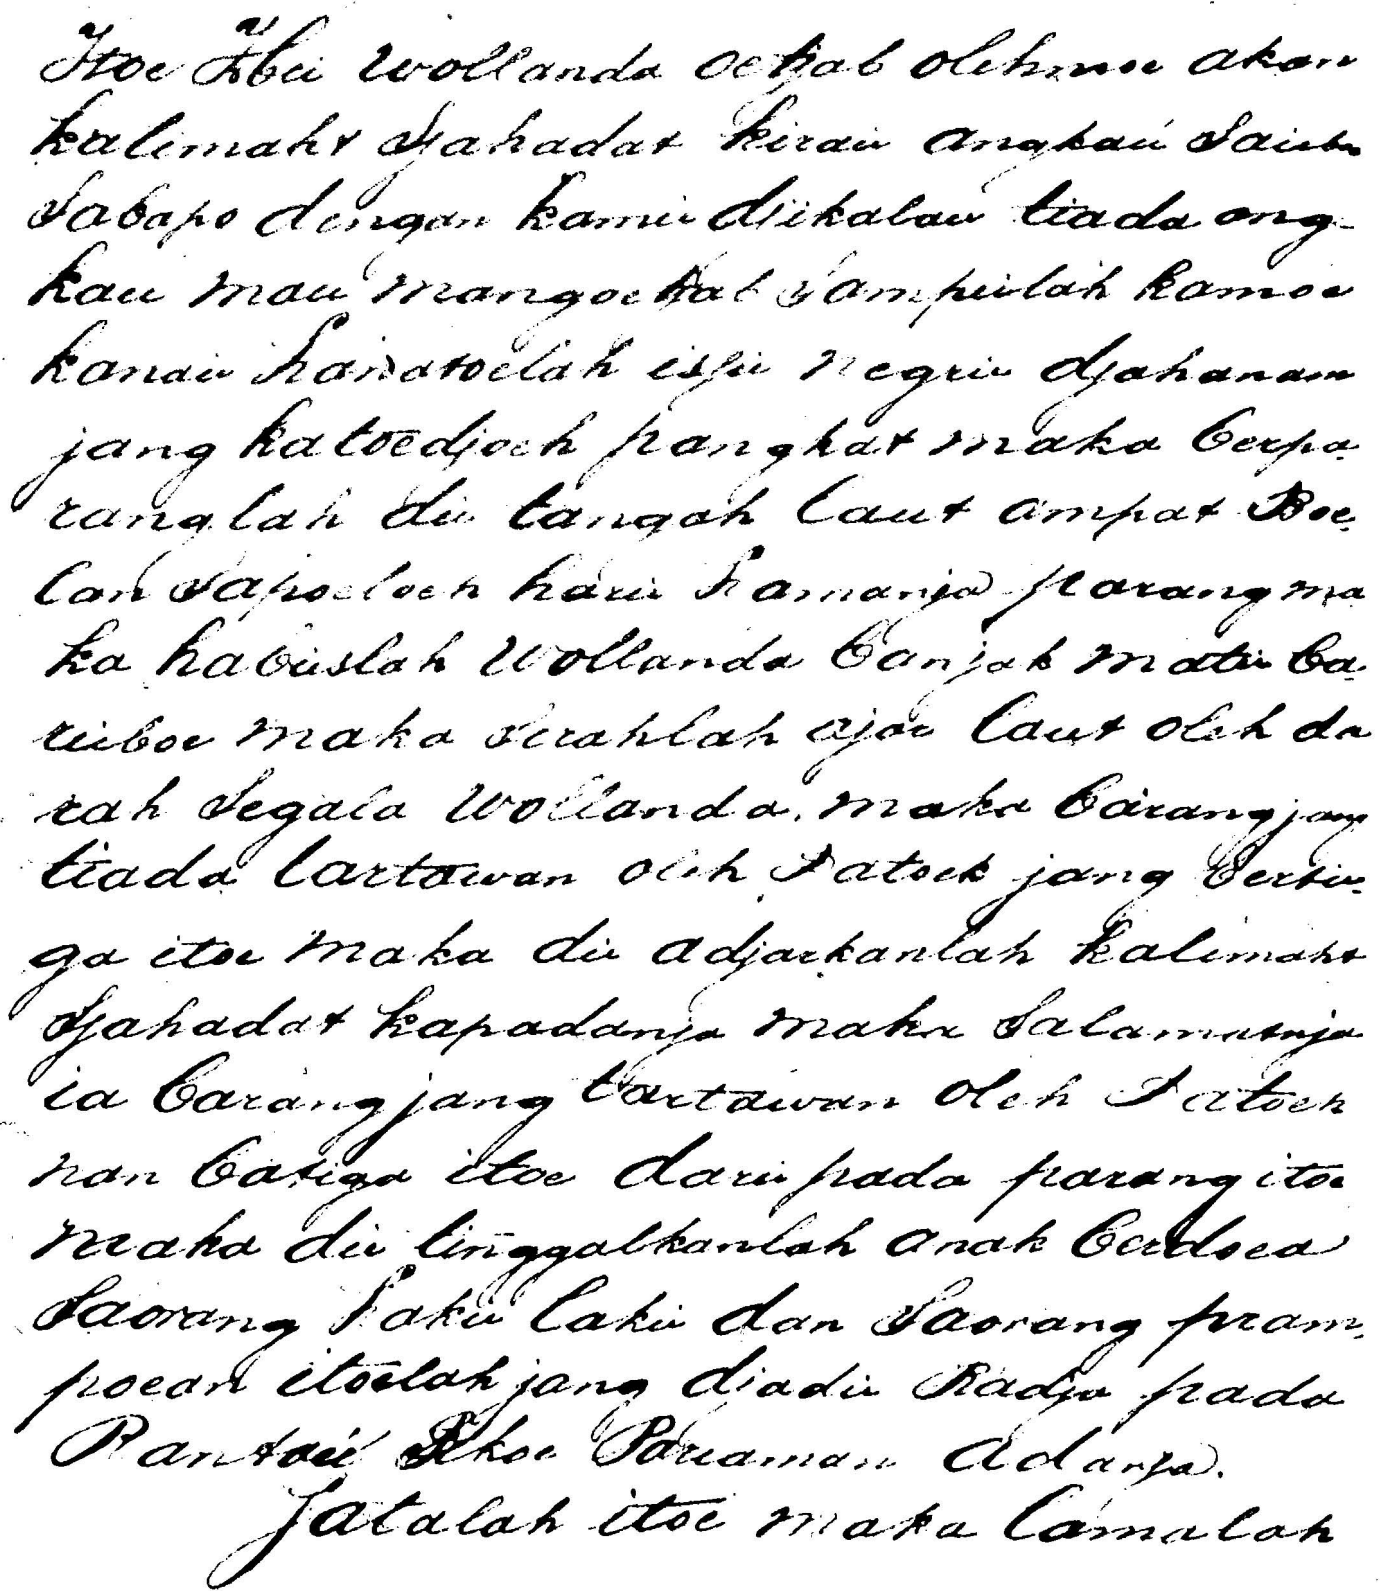 Itoe Hei Wollanda oetjab olehmoe akan
kalimaht Sjahadat kirau angkau Saiboe
Sabapo dengan kamu djikalau tiada ang-
kau mau mangoetjab Sampeilah kamoe
kanaii hanatoelah isji negrii djahanam
jang katoedjoeh pangkat maka berpa-
ranglah di tangah laut ampat Boe-
lan Sapoeloeh harii Lamanja parang ma
ka habislah Wollanda banjak matii ba-
riiboe maka Serahlah ajar laut oleh da
rah Segala Wollanda, maka barang jang
tiada tartawan oleh Datoek jang berti-
ga itoe maka di adjarkanlah kalimaht
Sjahadat kapadanja maka Salamatnja
ia barang jang tartawan oleh Datoek
nan batiga itoe dari pada parang itoe
maka di tinggalkanlah anak berdoea
Saorang Laki laki dan Saorang pram-
poean itoelah jang djadii Radja pada
Rantau Tikoe Pariaman adanja.
Satalah itoe maka lamalah